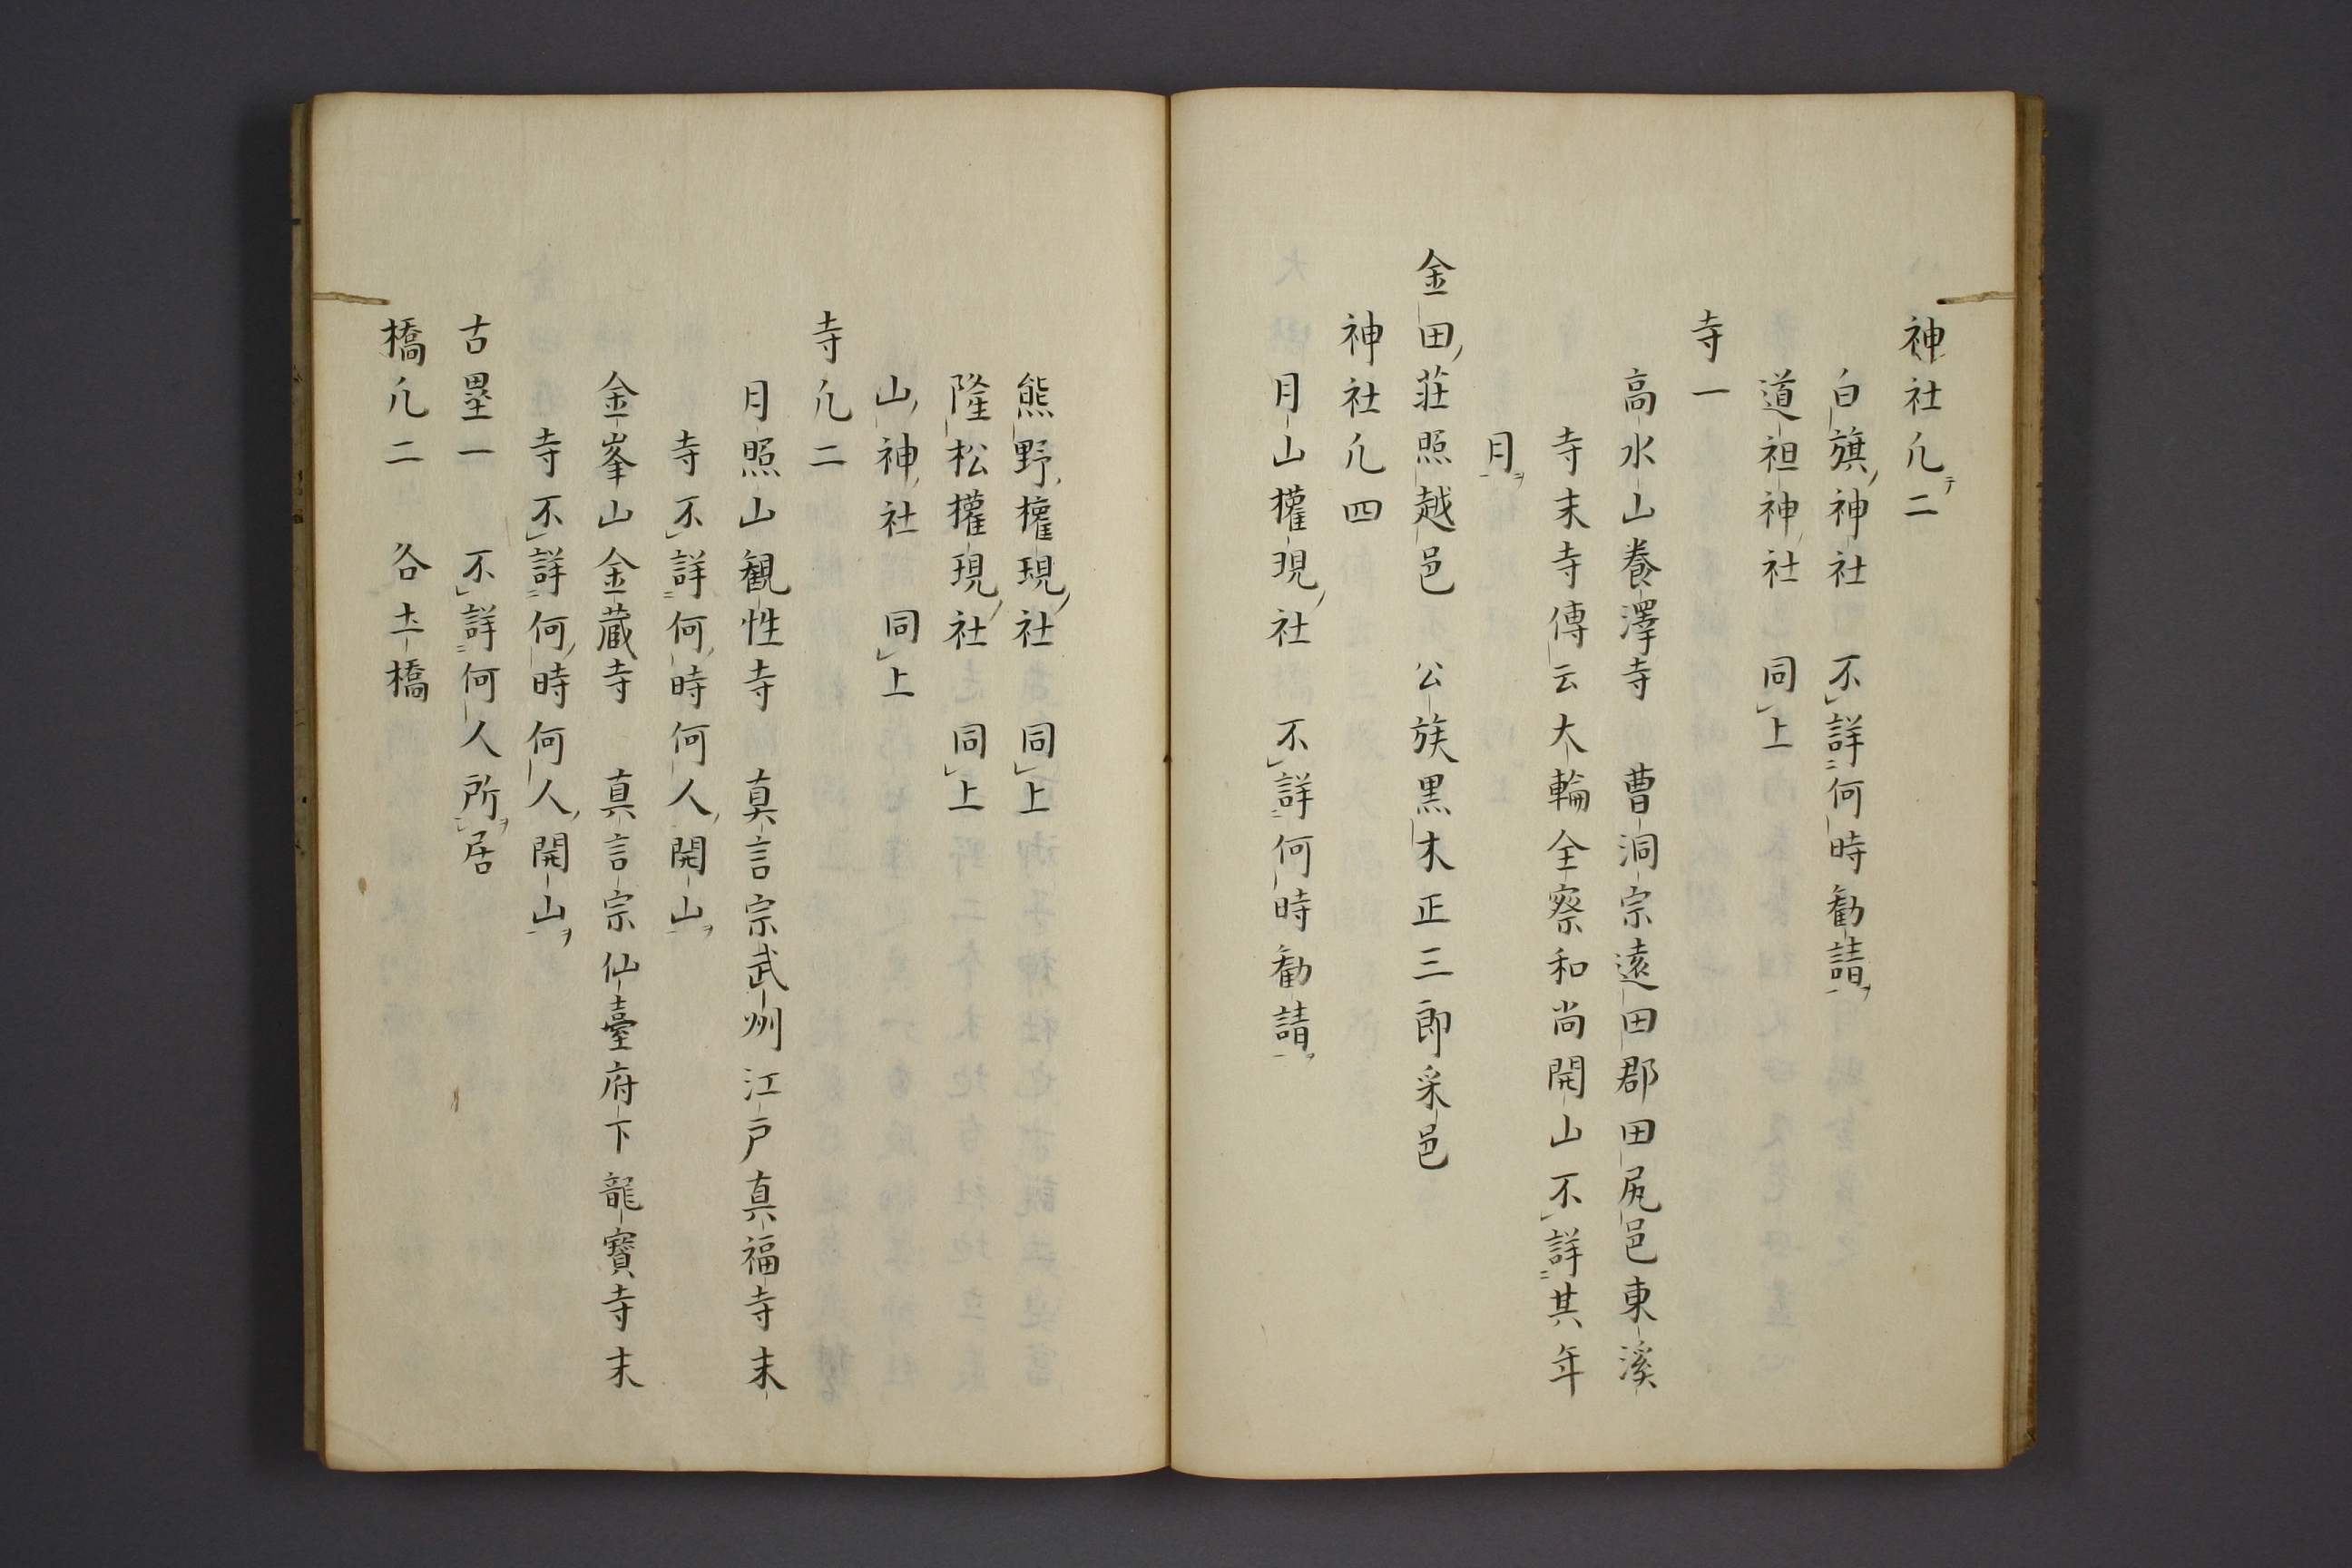 神社凢二
白旗神社　不詳何時勧請
道祖神社　同上
寺一
高水山養澤寺　曹洞宗遠田郡田尻邑東溪
寺末寺傳云大輪全察和尚開山不詳其年
月
金田荘照越邑　公族黒木正三郎采邑
神社凢四
月山權現社　不詳何時勧請
熊野權現社　同上
隆松權現社　同上
山神社　同上
寺凢二
月照山観性寺　真言宗武州江戸真福寺末
寺不詳何時何人開山
金峯山金蔵寺　真言宗仙臺府下龍寳寺末
寺不詳何時何人開山
古塁一　不詳何人所居
橋凢二　各土橋